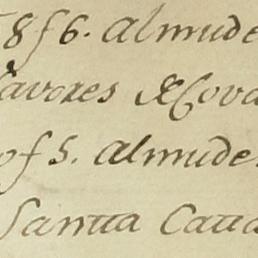 86. Almude
avores & Cova
of 5. Almude
Santa Cata